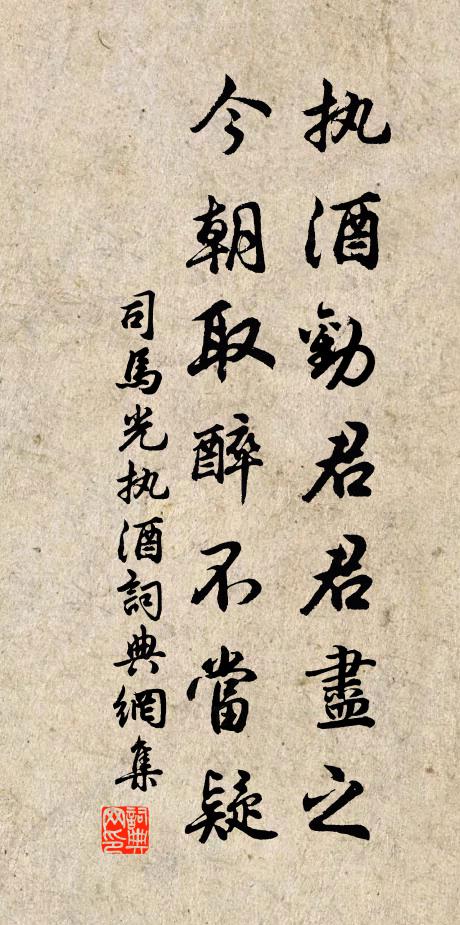 执酒勸君君盡之
今朝取醉不當疑
司馬光执酒詞典網集
詞典
网印